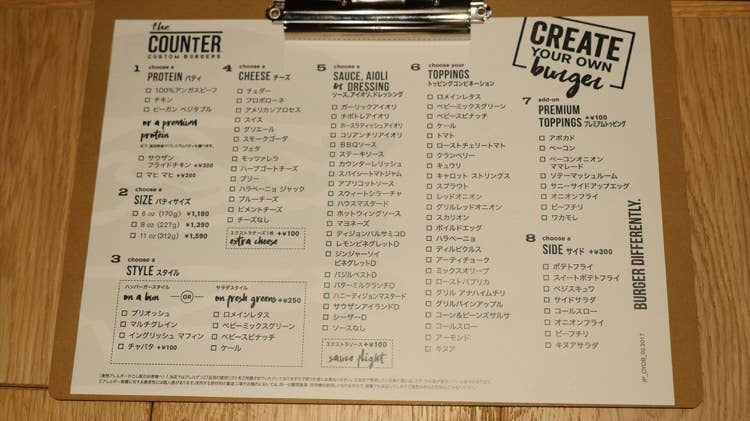 the
COUNTER
CUSTOM BURGERS
CREATE
YOUR OWN
burger
1 choose a
PROTEIN パティ
100%アンガスビーフ
チキン
ビーガン ベジタブル
or a premium
protein
サウザン
フライドチキン +¥300
マヒ マヒ +¥200
2 choose a
SIZE パティサイズ
6 oz (170g) ¥1,190
8 oz (227g) ¥1,390
11 oz (312g) ¥1,590
3 choose a
STYLE スタイル
ハンバーガースタイル
on a bun
ブリオッシュ
マルチグレイン
イングリッシュ マフィン
チャバタ +¥100
OR
サラダスタイル
on fresh greens +¥250
ロメインレタス
ベビーミックスグリーン
ベビースピナッチ
ケール
4 choose a
CHEESE チーズ
チェダー
プロボローネ
アメリカンプロセス
スイス
グリエール
スモークゴーダ
フェタ
モッツァレラ
ハーブゴートチーズ
ブリー
ハラペーニョ ジャック
ブルーチーズ
ピメントチーズ
チーズなし
エクストラチーズ1枚 +¥100
extra cheese
5 choose a
SAUCE, AIOLI
or DRESSING
ソース,アイオリ,ドレッシング
ガーリックアイオリ
チポトレアイオリ
ホースラディッシュアイオリ
コリアンチリアイオリ
BBQソース
ステーキソース
カウンターレリッシュ
スパイシートマトジャム
アプリコットソース
スウィートシラーチャ
ハウスマスタード
ホットウィングソース
マヨネーズ
ディジョンバルサミコD
レモンビネグレットD
ジンジャーソイ
ビネグレットD
バジルペストD
バターミルクランチD
ハニーディジョンマスタード
サウザンアイランドD
シーザーD
ソースなし
エクストラソース +¥100
sauce flight
6 choose your
TOPPINGS
トッピングコンビネーション
ロメインレタス
ベビーミックスグリーン
ベビースピナッチ
ケール
トマト
ローストチェリートマト
クランベリー
キュウリ
キャロット ストリングス
スプラウト
レッドオニオン
グリルレッドオニオン
スカリオン
ボイルドエッグ
ハラペーニョ
ディルピクルス
アーティチョーク
ミックスオリーブ
ローストパプリカ
グリル アナハイムチリ
グリルパインアップル
コーン&ビーンズサルサ
コールスロー
アーモンド
キヌア
7 add-on
PREMIUM
TOPPINGS +¥100
プレミアムトッピング
アボカド
ベーコン
ベーコンオニオン
ママレード
ソテーマッシュルーム
サニーサイドアップエッグ
オニオンフライ
ビーフチリ
ワカモレ
8 choose a
SIDE サイド +¥300
ポテトフライ
スイートポテトフライ
ベジスキュワ
サイドサラダ
コールスロー
オニオンフライ
ビーフチリ
キヌアサラダ
BURGER DIFFERENTLY.
JP_CYOB_03.2017